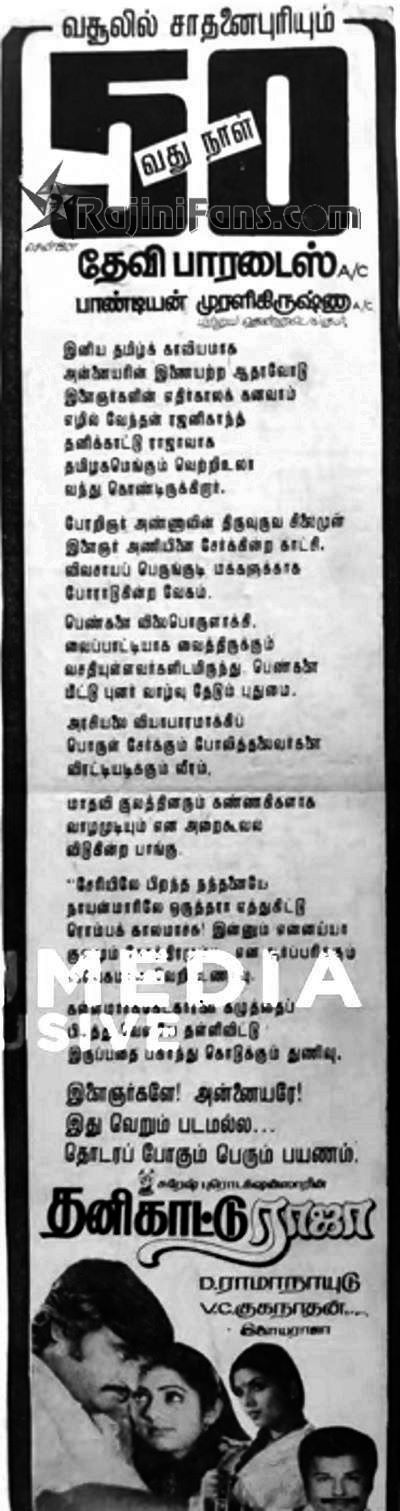 வசூலில் சாதனைபுரியும்
50
வது நாள்
RajiniFans.com
சென்னை
தேவி பாரடைஸ் A/C
பாண்டியன் முரளிகிருஷ்ணு A/C
இனிய தமிழ்க் காவியமாக
அன்னையரின் இணையற்ற ஆதரவோடு
இளைஞர்களின் எதிர்காலக் கனவாம்
எழில் வேந்தன் ரஜனிகாந்த்
தனிக்காட்டு ராஜாவாக
தமிழகமெங்கும் வெற்றிஉலா
வந்து கொண்டிருக்கிறார்.
பேரறிஞர் அண்ணாவின் திருவுருவ சிலைமுன்
இளைஞர் அணியினை சேர்க்கின்ற காட்சி.
விவசாயப் பெருங்குடி மக்களுக்காக
போராடுகின்ற வேகம்.
பெண்களை விலைபொருளாக்கி,
வைப்பாட்டியாக வைத்திருக்கும்
வசதியுள்ளவர்களிடமிருந்து பெண்களை
மீட்டு புனர் வாழ்வு தேடும் புதுமை.
அரசியலை வியாபாரமாக்கிப்
பொருள் சேர்க்கும் போலித்தலைவர்களை
விரட்டியடிக்கும் வீரம்.
மாதவி குலத்தினரும் கண்ணகிகளாக
வாழமுடியும் என அறைகூவல்
விடுகின்ற பாங்கு.
"சேரியிலே பிறந்த நந்தனையே
நாயன்மாரிலே ஒருத்தரா எத்துகிட்டு
ரொம்பக் காலமாச்சு! இன்னும் என்னைய்யா
MEDIA
USIVE
கழுத்தைப்
தள்ளிவிட்டு
இருப்பதை பகிர்ந்து கொடுக்கும் துணிவு.
இளைஞர்களே! அன்னையரே!
இது வெறும் படமல்ல...
தொடரப் போகும் பெரும் பயணம்.
சுரேஷ் புரொடக்ஷன்ஸாரின்
தனிகாட்டு ராஜா
D.ராமாநாயுடு
V.C.குகநாதன்
இளையராஜா